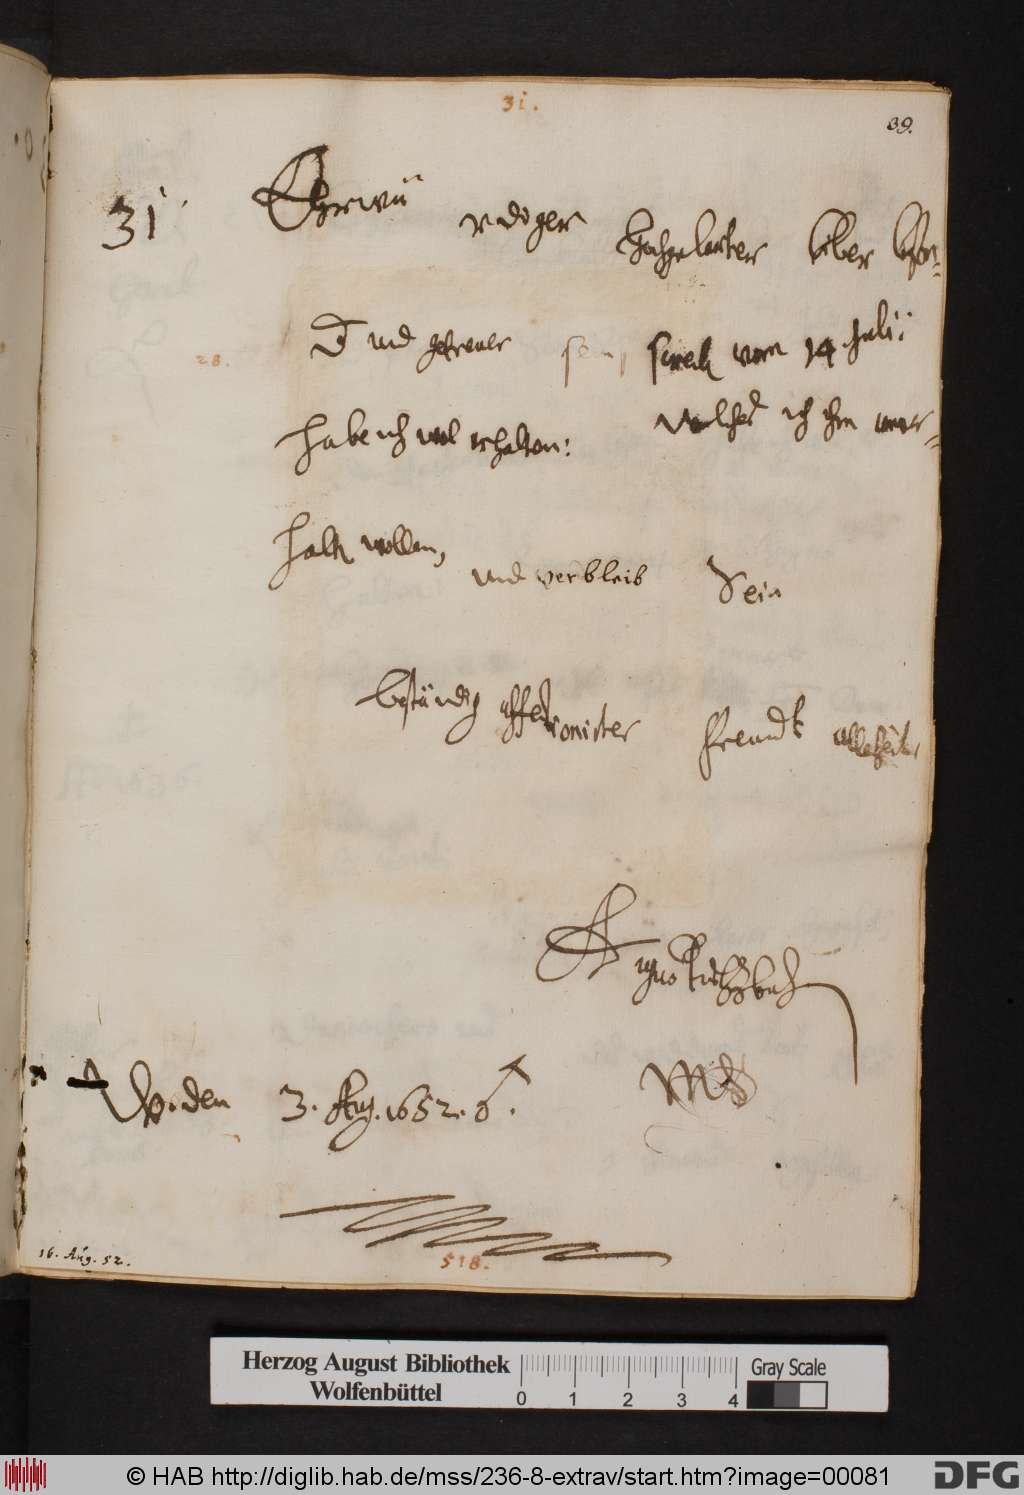 31.
39.
31. Ehrwü rdiger Hochgelarter lieber beson-
D und getreuer sein schreib vom 14 Julii
habe ich wol erhalten: welches ich ihm
halt wollen, und verbleib Sein
bestündig affectionirter freundt allezeit
Augustus HzBuL
W. den 3. Aug. 1652.
16. Aug. 52.
518.
Herzog August Bibliothek
Wolfenbüttel
0 1 2 3 4
Gray Scale
© HAB http://diglib.hab.de/mss/236-8-extrav/start.htm?image=00081
DFG